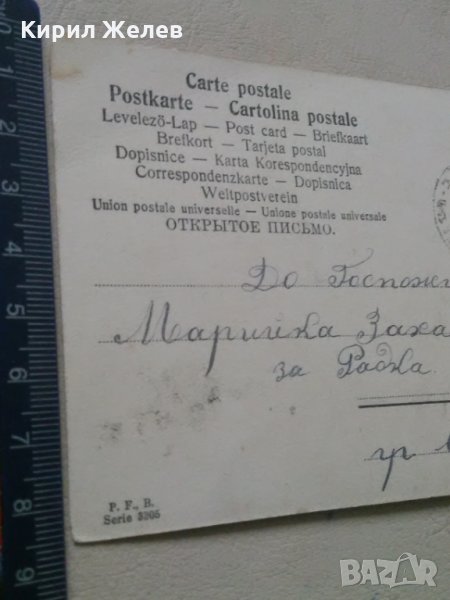 Кирил Желев
Carte postale
Postkarte — Cartolina postale
Levelező-Lap — Post card — Briefkaart
Brefkort — Tarjeta postal
Dopisnice — Karta Korespondencyjna
Correspondenzkarte — Dopisnica
Weltpostverein
Union postale universelle — Unione postale universale
ОТКРЫТОЕ ПИСЬМО.
До Госпожи
Марийка Заха
за Радка
гр
P. F., B.
Serie 5205
1
2
3
4
5
6
7
8
9
BAZAR